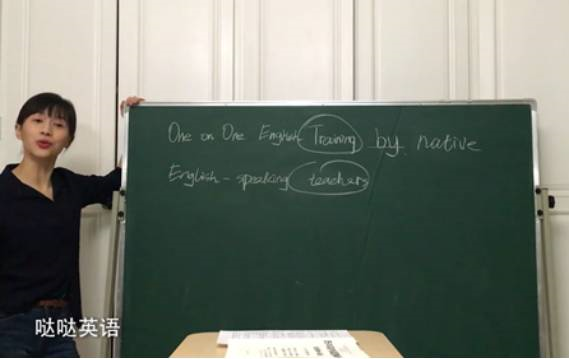 One on One English Training by native
English-speaking teachers
哒哒英语